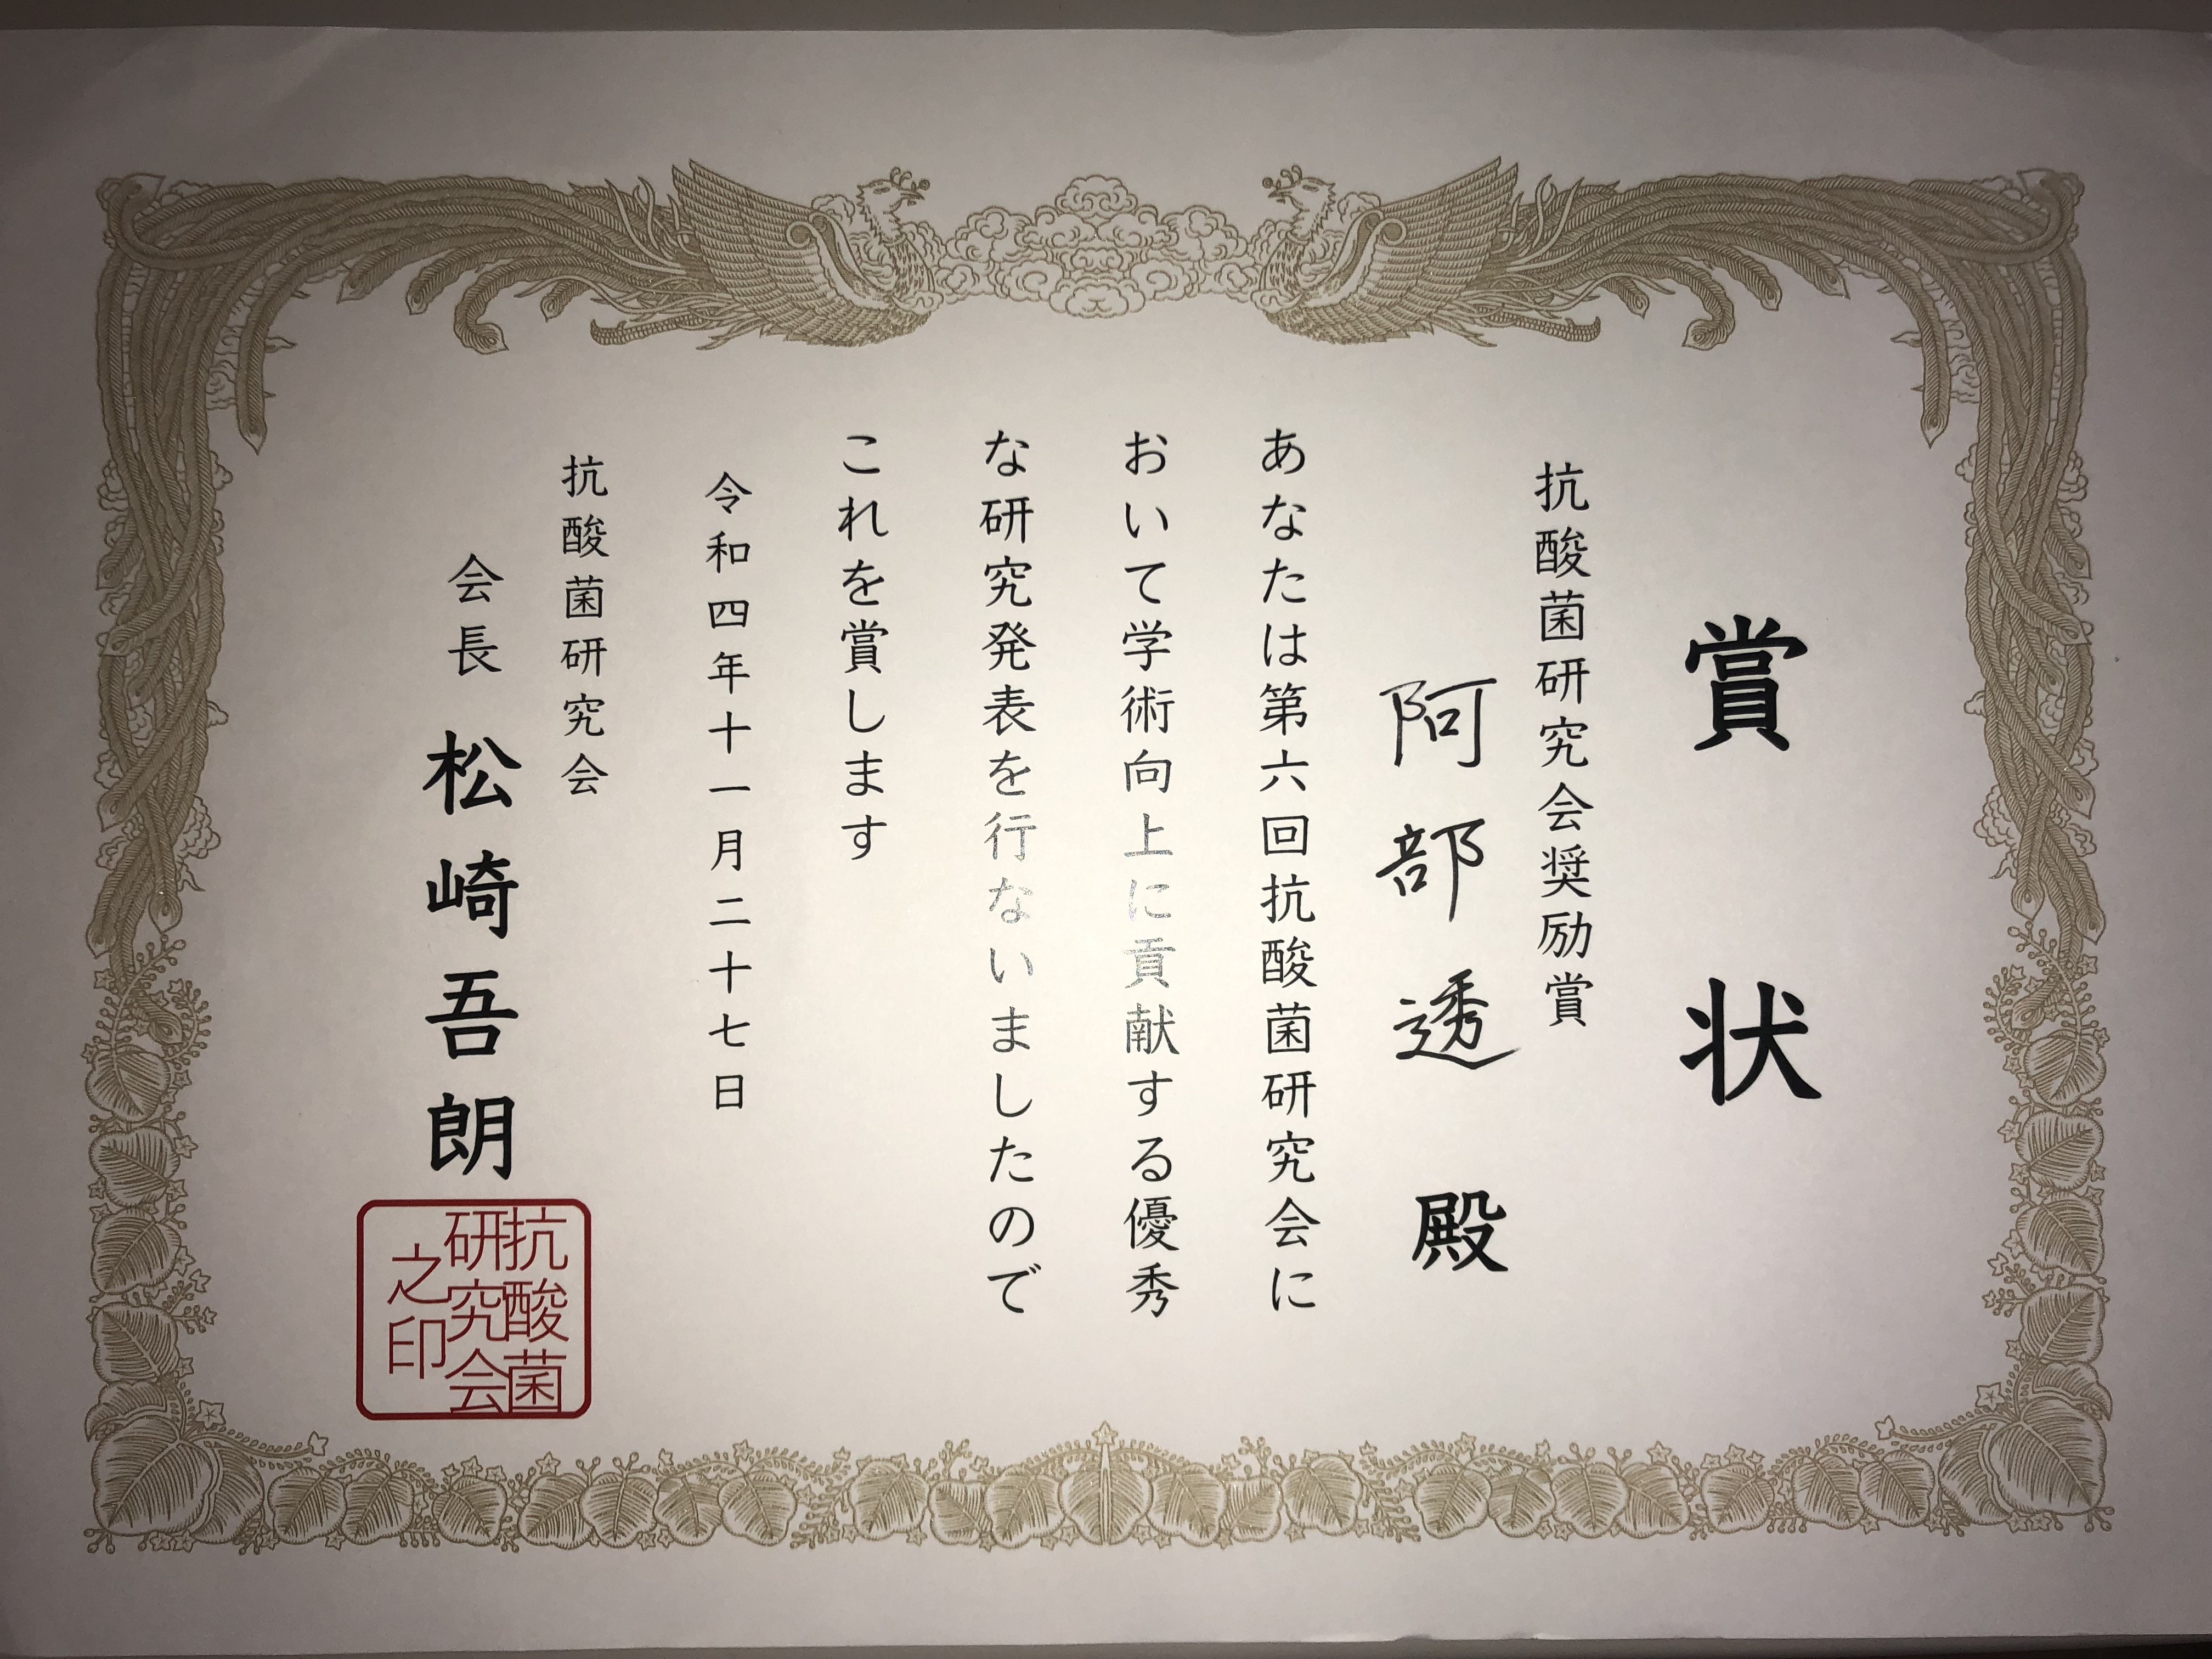 賞状
抗酸菌研究会奨励賞
阿部透 殿
あなたは第六回抗酸菌研究会に
おいて学術向上に貢献する優秀
な研究発表を行ないましたので
これを賞します
令和四年十一月二十七日
抗酸菌研究会
会長 松崎吾朗
抗酸菌
研究会
之印